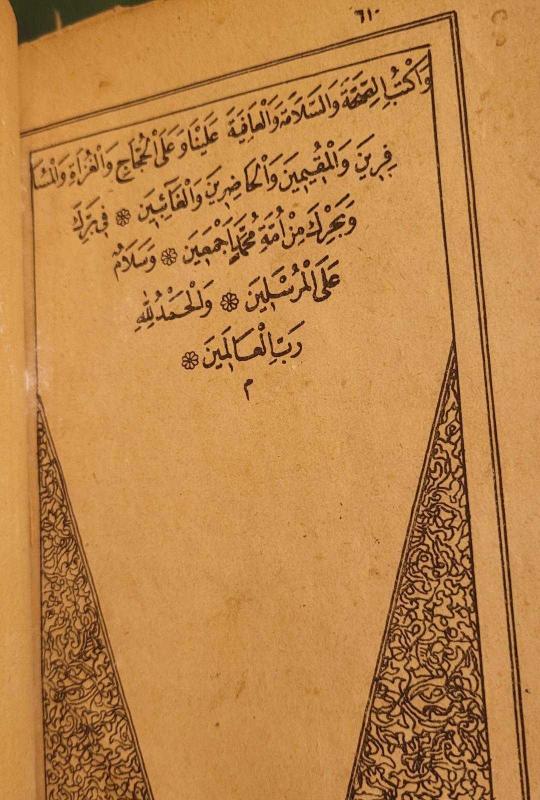 ٦١٠
وَاكْتُبِ الصِّحَّةَ وَالسَّلَامَةَ وَالْعَافِيَةَ عَلَيْنَا وَعَلَى الْحُجَّاجِ وَالْغُزَاةِ وَالْمُسَا
فِرِينَ وَالْمُقِيمِينَ وَالْحَاضِرِينَ وَالْغَائِبِينَ ۞ فِي بَرِّكَ
وَبَحْرِكَ مِنْ اُمَّةِ مُحَمَّدٍ اَجْمَعِينَ ۞ وَسَلَامٌ
عَلَى الْمُرْسَلِينَ ۞ وَالْحَمْدُ لِلّٰهِ
رَبِّ الْعَالَمِينَ ۞
م